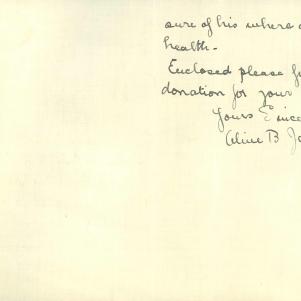 sure of his where a
health.
Enclosed please f
donation for your
Yours Since
Aline B J